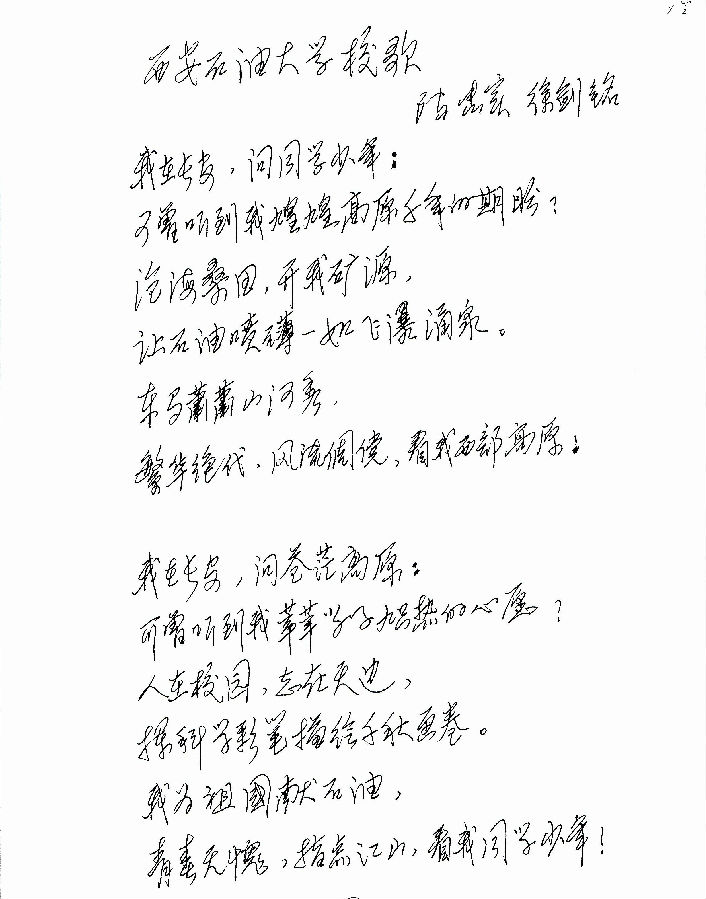 西安石油大学校歌
陈忠实 徐剑铭
我在长安，问同学少年：
可曾听到我煌煌高原千年的期盼？
沧海桑田，开我矿源，
让石油喷礴一如飞瀑涌泉。
车马萧萧山河秀，
繁华绝代，风流倜傥，看我西部高原！
我在长安，问苍茫高原：
可曾听到我莘莘学子炽热的心愿？
人在校园，志在天边，
择科学彩笔描绘千秋画卷。
我为祖國献石油，
青春无愧，指点江山，看我同学少年！